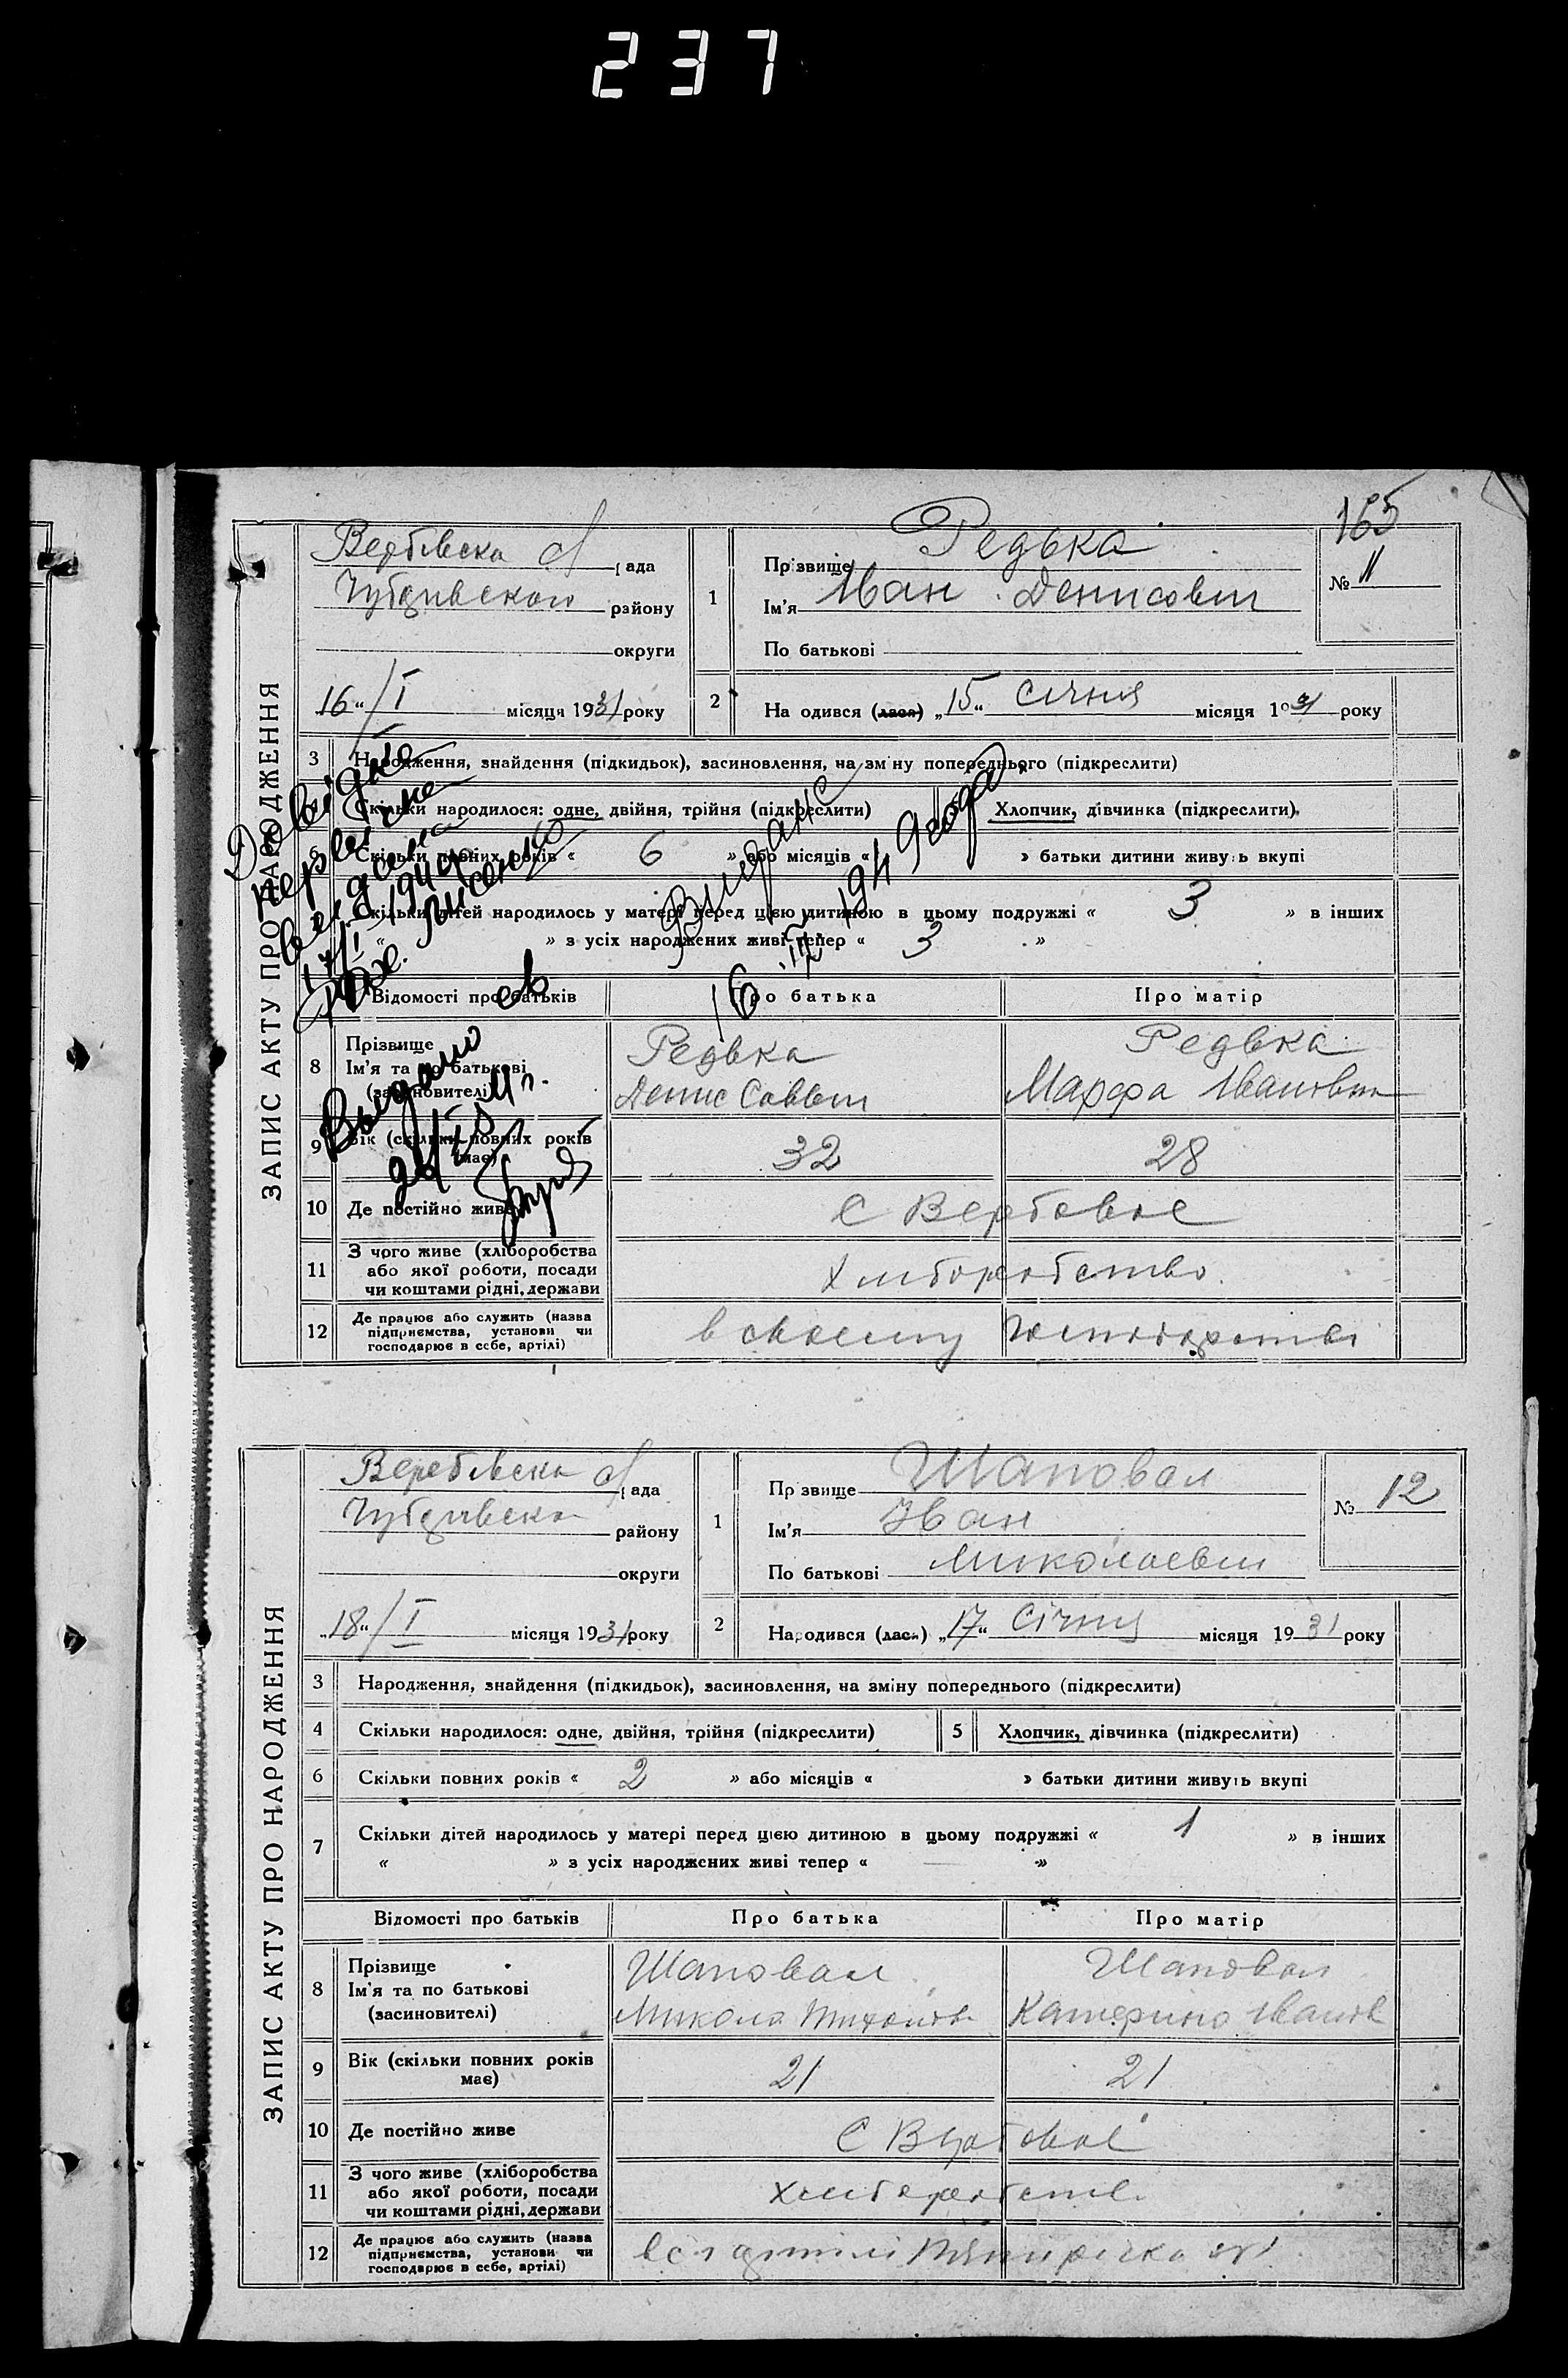 237
165
ЗАПИС АКТУ ПРО НАРОДЖЕННЯ
Вербівска с/ рада
Чубарівского району
округи
"16" / I місяця 1931 року
1
Прізвище Редька
Ім'я Иван Денисович
По батькові
№ 11
2 Народився (лася) "15" Січня місяця 1931 року
3 Народження, знайдення (підкидьок), засиновлення, на зміну попереднього (підкреслити)
Скільки народилося: одне, двійня, трійня (підкреслити) Хлопчик, дівчинка (підкреслити)
Скільки повних років « 6 » або місяців « » батьки дитини живуть вкупі
Скільки дітей народилось у матері перед цією дитиною в цьому подружжі « 3 » в інших
« » з усіх народжених живі тепер « 3 »
Довідка
первісна
видана
17/I 1944
Лисенко
Видано св
16 194 9 года
Выдано св
Відомості про батьків Про батька Про матір
8 Прізвище Ім'я та по батькові (засиновителі)
Редька Редька
Денис Саввич Марфа Івановна
9 Вік (скільки повних років має) 32 28
10 Де постійно живе С Вербовое
11 З чого живе (хліборобства або якої роботи, посади чи коштами рідні, держави Хліборобство
12 Де працює або служить (назва підприємства, установи чи господарює в себе, артілі) в своєму господарстві
ЗАПИС АКТУ ПРО НАРОДЖЕННЯ
Веребівска с/ рада
Чубарівска району
округи
"18" / I місяця 1931 року
1
Прізвище Шаповал
Ім'я Иван
По батькові Миколаевич
№ 12
2 Народився (лася) "17" Січня місяця 1931 року
3 Народження, знайдення (підкидьок), засиновлення, на зміну попереднього (підкреслити)
4 Скільки народилося: одне, двійня, трійня (підкреслити) 5 Хлопчик, дівчинка (підкреслити)
6 Скільки повних років « 2 » або місяців « » батьки дитини живуть вкупі
7 Скільки дітей народилось у матері перед цією дитиною в цьому подружжі « 1 » в інших
« » з усіх народжених живі тепер « — »
Відомості про батьків Про батька Про матір
8 Прізвище Ім'я та по батькові (засиновителі)
Шаповал Шаповал
Микола Тихонов Катерина Іванов
9 Вік (скільки повних років має) 21 21
10 Де постійно живе С Вербовое
11 З чого живе (хліборобства або якої роботи, посади чи коштами рідні, держави хліборобство
12 Де працює або служить (назва підприємства, установи чи господарює в себе, артілі)